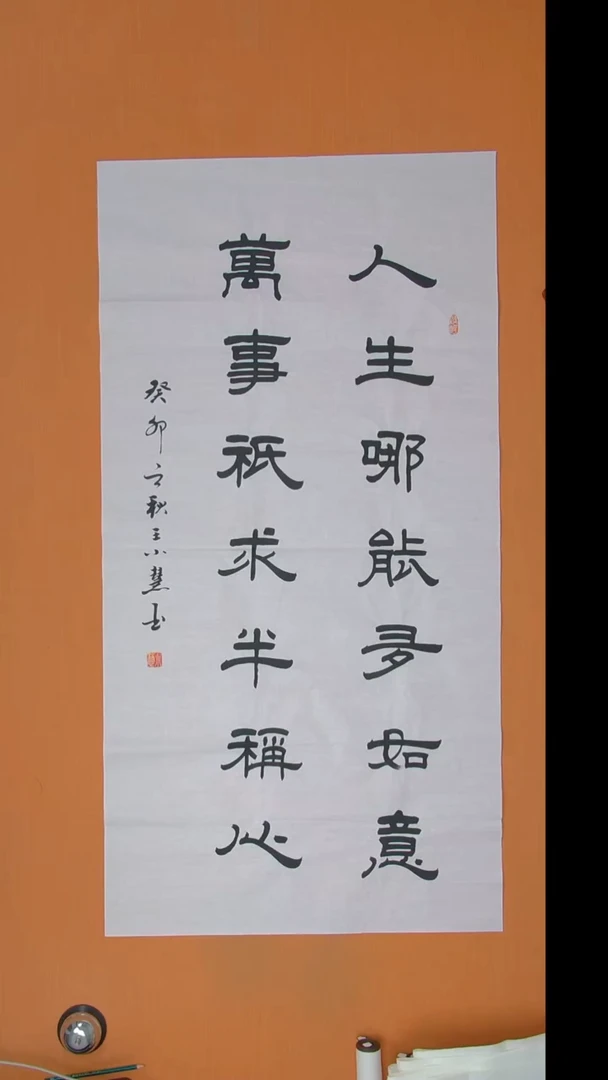 人生哪能多如意
萬事祇求半稱心
癸卯立秋王小慧书